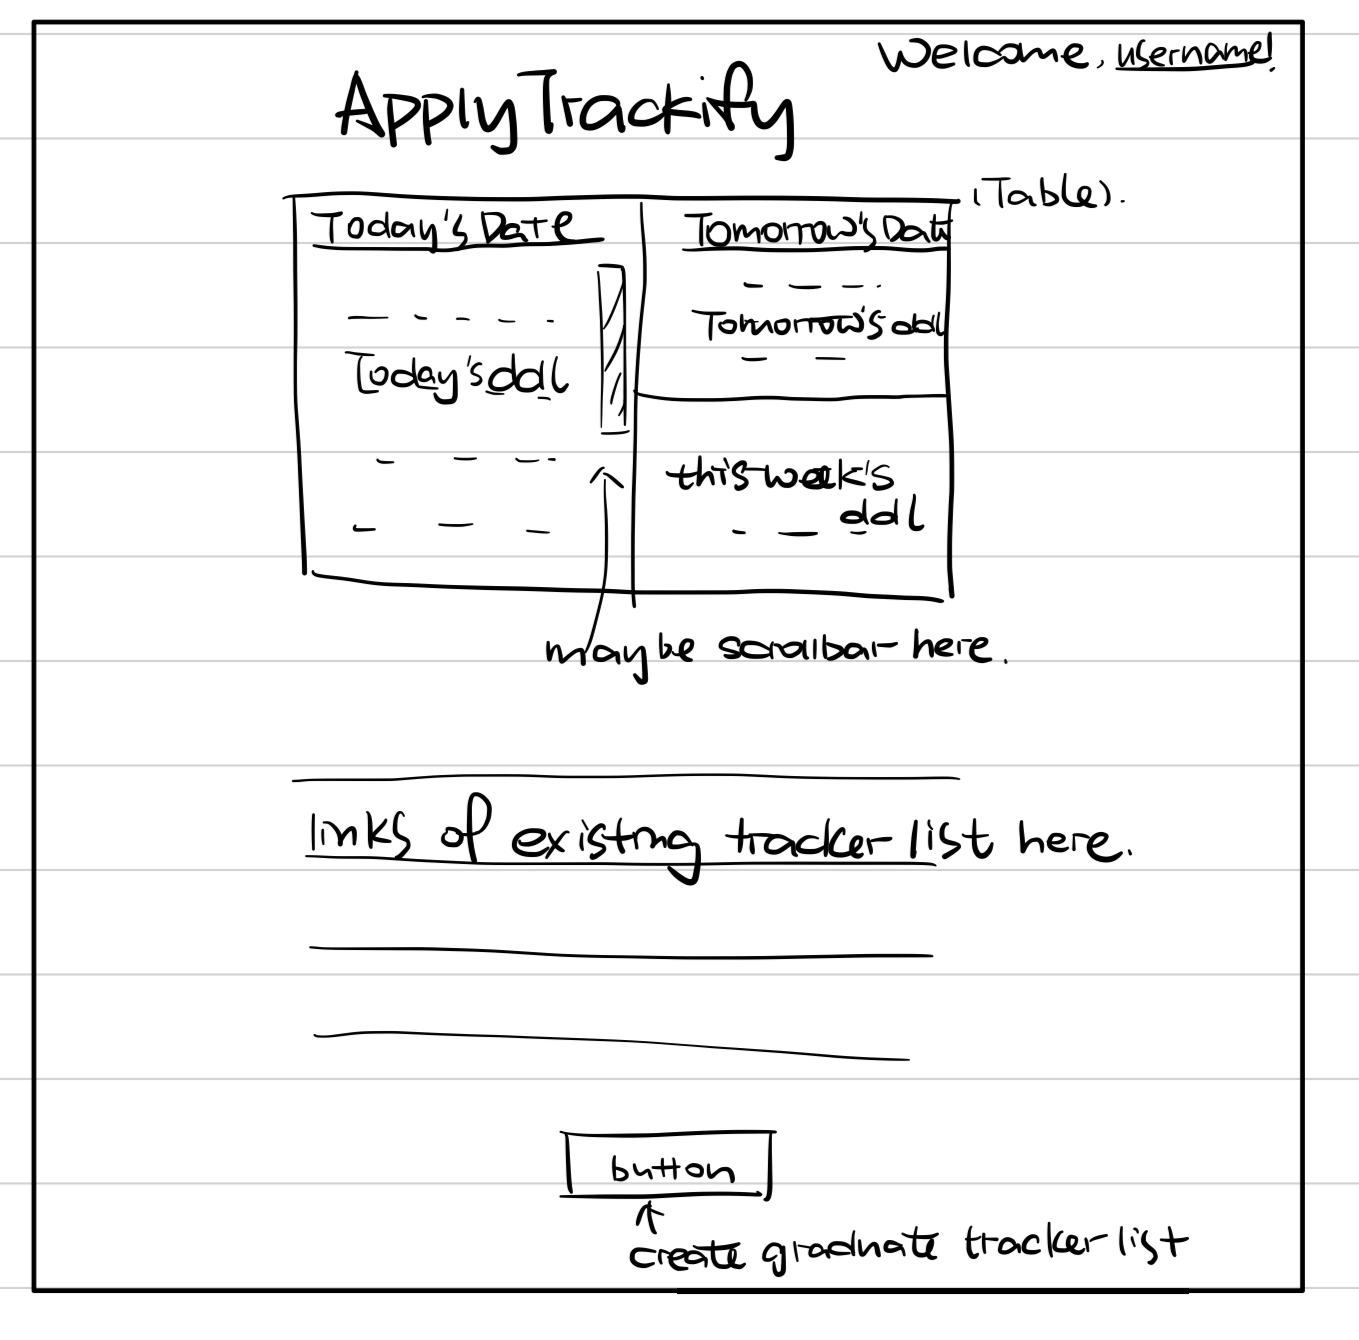 Welcome, username!
ApplyTrackify
(Table).
Today's Date
Tomorrow's Date
Tomorrow's ddl
Today's ddl
this week's
ddl
maybe scrollbar here.
links of existing tracker list here.
button
create graduate tracker list